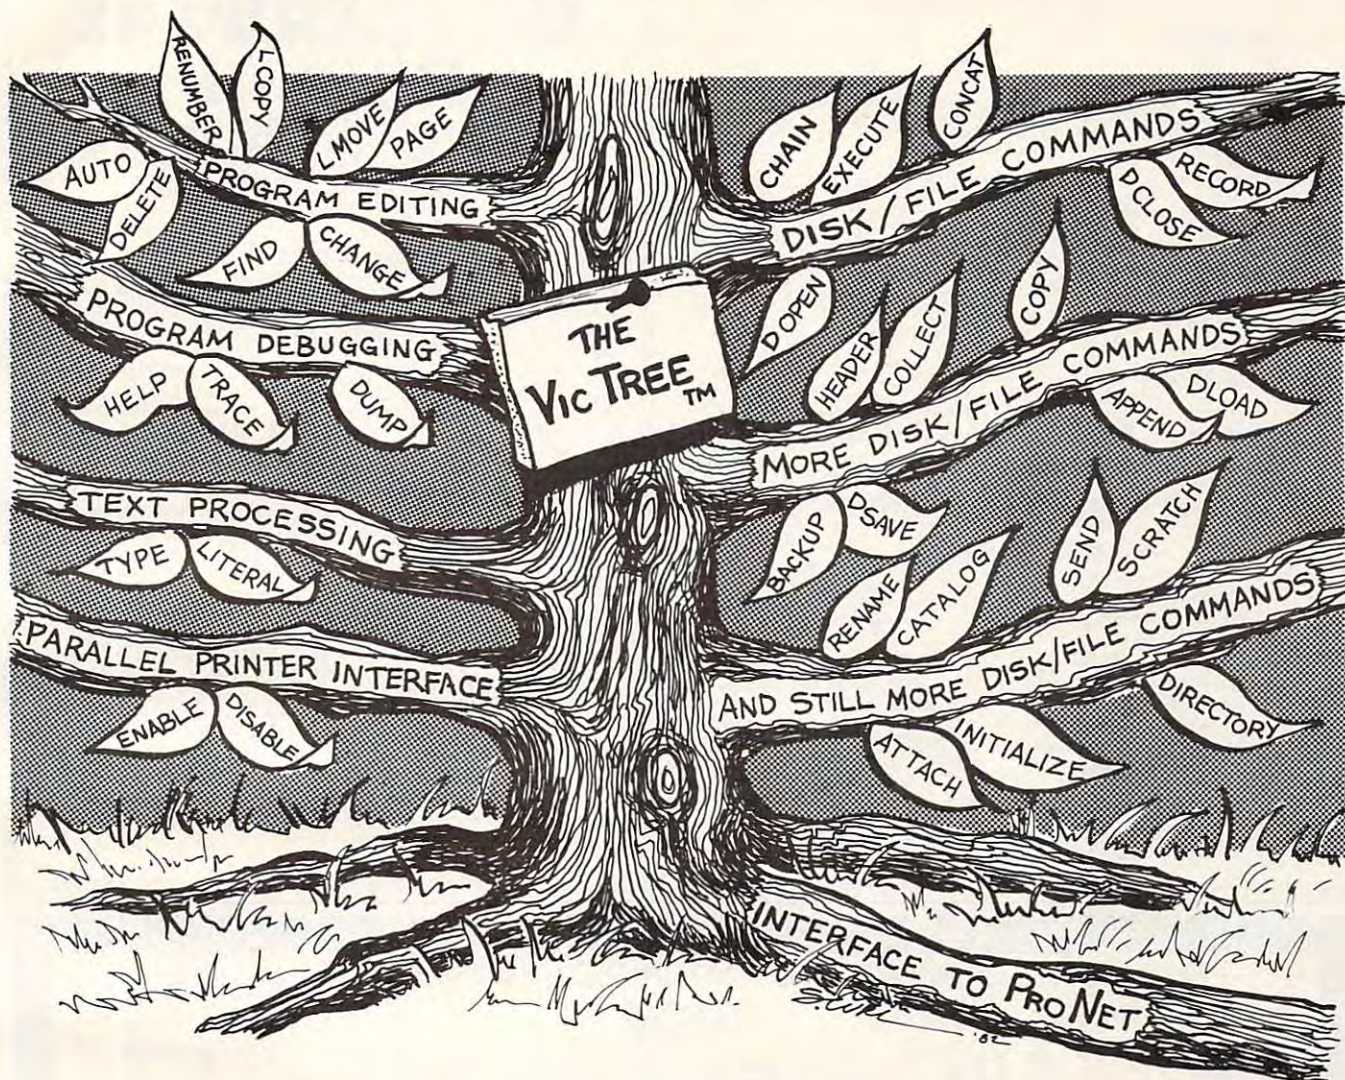 RENUMBER
LCOPY
LMOVE
PAGE
AUTO
DELETE
PROGRAM EDITING
FIND
CHANGE
PROGRAM DEBUGGING
HELP
TRACE
DUMP
TEXT PROCESSING
TYPE
LITERAL
PARALLEL PRINTER INTERFACE
ENABLE
DISABLE
THE
VIC TREE TM
CHAIN
EXECUTE
CONCAT
DISK/FILE COMMANDS
RECORD
DCLOSE
DOPEN
HEADER
COLLECT
COPY
MORE DISK/FILE COMMANDS
APPEND
DLOAD
BACKUP
DSAVE
RENAME
CATALOG
SEND
SCRATCH
AND STILL MORE DISK/FILE COMMANDS
ATTACH
INITIALIZE
DIRECTORY
INTERFACE TO PRONET
'82